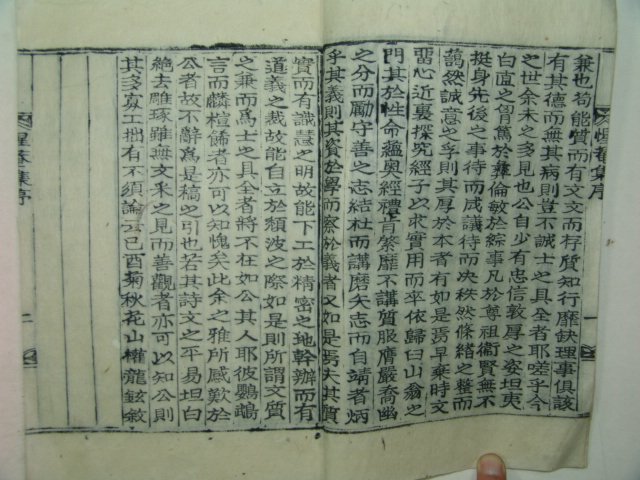 兼也苟能質而有文文而存質知行靡缺理事俱該
有其德而無其病則豈不誠士之具全者耶嗟乎今
之世余未之多見也公自少有忠信敦厚之姿坦夷
白直之胷篤於彝倫敏於綜事凡於尊祖衛賢無不
挺身先後之事待而成議待而決秩然條緖之整而
藹然誠意之孚則其厚於本者有如是焉早棄時文
留心近裏探究經子以求實用而率依歸臼山翁之
門其於性命蘊奧經禮肯綮靡不講質服膺嚴喬幽
之分而勵守善之志結社而講磨矢志而自靖者炳
乎其義則其資於學而察於義者又如是焉夫其質
實而有識慧之明故能下工於精密之地幹辦而有
道義之裁故能自立於頹波之際如是則所謂文質
之兼而爲士之具全者將不在如公其人耶彼鸚鵡
言而麟楦餙者亦可以知愧矣此余之雅所感歎於
公者故不辭爲是稿之引也若其詩文之平易坦白
絶去雕琢雖無文采之見而善觀者亦可以知公則
其多寡工拙有不須論云己酉菊秋花山權龍鉉敘
惺菴集序
一
惺菴集序
二